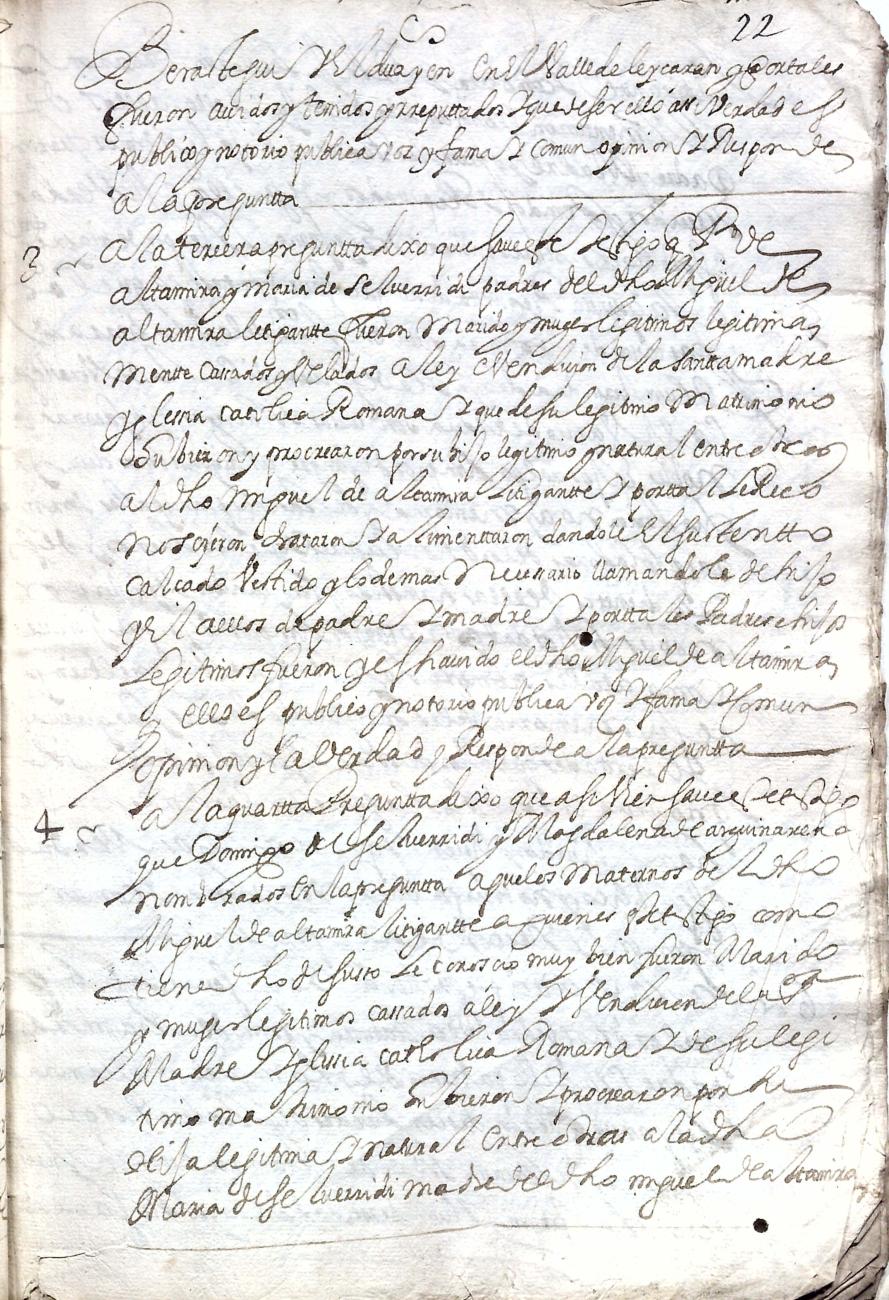 22
Berastegui y Elduayen En El Valle de leycaran y Por tales
fueron avidos y tenidos y rreputtados y que de ser ello assi Verdad es
publico y notorio publica voz y fama y comun opinion y Responde
a la pregunta
3 a la tercera pregunta dixo que save este Testigo q de
altamira y maria de Selverridi padres del dho Miguel de
altamira litigantte fueron Marido y muger legitimos legitima
Mentte Cassados y Velados a ley e Vendizion de la santta madre
Yglessia Catolica Romana y que de su legitimo Mattrimonio
Hubieron y procrearon por su hijo legitimo y natural entre otros
al dho Miguel de altamira Litigantte y por tal le Reco
nocieron trataron y alimenttaron dandole El sustentto
Calcado Vestido y lo demas Necessario llamandole de hijo
y El a ellos de padre y madre y por tales Padres e hijo
Legitimos fueron y es havido el dho Miguel de altamira
y ello es publico y notorio publica voz y fama y Comun
opinion y la Verdad y Responde a la pregunta
4 a la quartta Pregunta dixo que assi bien save este Testigo
que Domingo de Selverridi y Magdalena de arvinarena
nombrados En la pregunta aguelos Maternos del dho
Miguel de altamira litigantte a quienes este Testigo como
tiene dho de susso Conoscio muy bien fueron Marido
y muger legitimos cassados a ley y Vendicion de la sta
Madre Yglesia catholica Romana y de su legi
timo matrimonio hubieron y procrearon por su
hija legitima y natural Entre otras a la dha
Maria de Selverridi madre del dho miguel de altamira